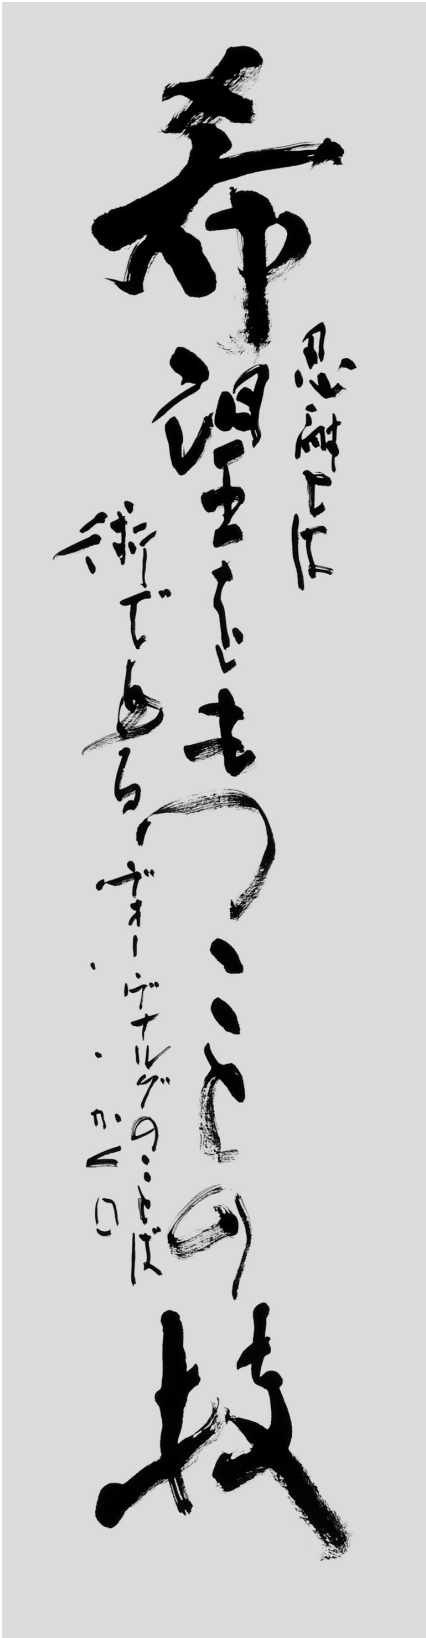 忍耐とは
希望をもつことの技
術である、ヴォーヴナルグのことば
かく